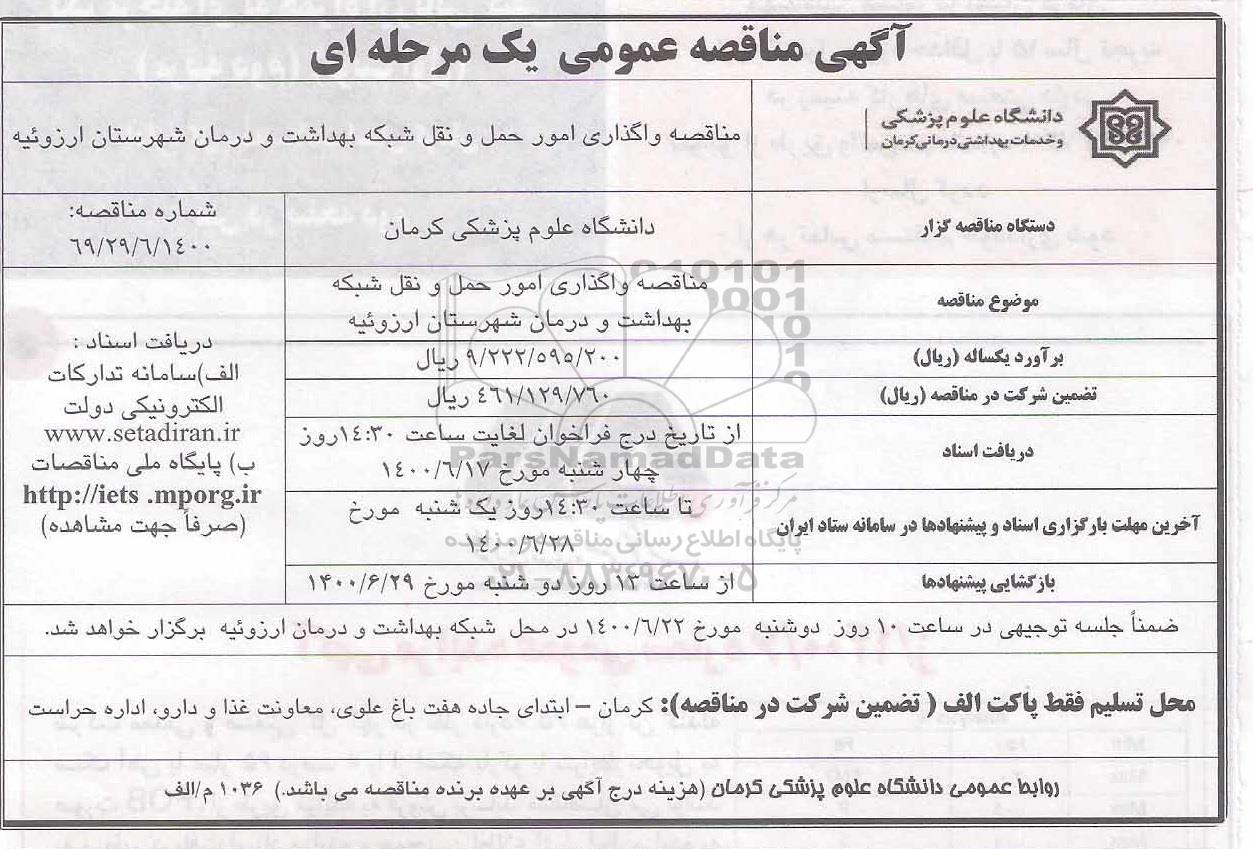 آگهی مناقصه عمومی یک مرحله ای
دانشگاه علوم پزشکی
وخدمات بهداشتی درمانی کرمان
مناقصه واگذاری امور حمل و نقل شبکه بهداشت و درمان شهرستان ارزوئیه
دستگاه مناقصه گزار
دانشگاه علوم پزشکی کرمان
شماره مناقصه:
٦٩/٢٩/٦/١٤٠٠
موضوع مناقصه
مناقصه واگذاری امور حمل و نقل شبکه
بهداشت و درمان شهرستان ارزوئیه
برآورد یکساله (ریال)
٩/٢٢٢/٥٩٥/٢٠٠ ریال
تضمین شرکت در مناقصه (ریال)
٤٦١/١٢٩/٧٦٠ ریال
دریافت اسناد
از تاریخ درج فراخوان لغایت ساعت ١٤:٣٠روز
چهار شنبه مورخ ١٤٠٠/٦/١٧
آخرین مهلت بارگزاری اسناد و پیشنهادها در سامانه ستاد ایران
تا ساعت ١٤:٣٠روز یک شنبه مورخ
١٤٠٠/٦/٢٨
بازگشایی پیشنهادها
از ساعت ١٣ روز دو شنبه مورخ ١٤٠٠/٦/٢٩
دریافت اسناد :
الف)سامانه تدارکات
الکترونیکی دولت
www.setadiran.ir
ب) پایگاه ملی مناقصات
http://iets .mporg.ir
(صرفاً جهت مشاهده)
ضمناً جلسه توجیهی در ساعت ١٠ روز دوشنبه مورخ ١٤٠٠/٦/٢٢ در محل شبکه بهداشت و درمان ارزوئیه برگزار خواهد شد.
محل تسلیم فقط پاکت الف ( تضمین شرکت در مناقصه): کرمان – ابتدای جاده هفت باغ علوی، معاونت غذا و دارو، اداره حراست
روابط عمومی دانشگاه علوم پزشکی کرمان (هزینه درج آگهی بر عهده برنده مناقصه می باشد.) ١٠٣٦ م/الف
ParsNamadData
پایگاه اطلاع رسانی مناقصه و مزایده